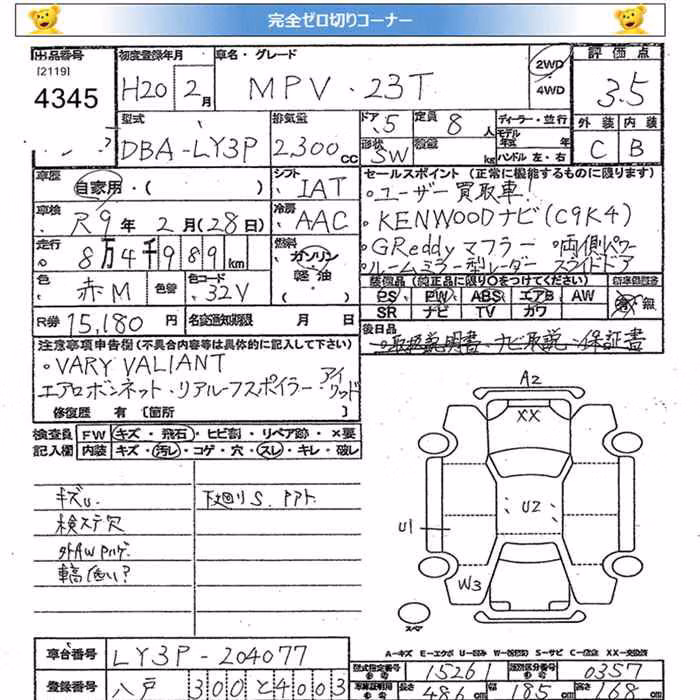 完全ゼロ切りコーナー
出品番号 初度登録年月 車名・グレード 評価点
[2119]
4345 H20 2月 MPV・23T 2WD・4WD 3.5
型式 排気量 ドア 5 定員 8人 ディーラー・並行 外装 内装
DBA-LY3P 2,300cc 形状 SW 積載 kg モデル 年式 年 ハンドル 左・右 C B
車歴 自家用・( ) シフト IAT セールスポイント (正常に機能するものに限ります)
・ユーザー買取車!
車検 R9年2月(28日) 冷房 AAC ・KENWOODナビ(C9K4)
走行 8万4千989km 燃料 ガソリン 軽油 ・GReddyマフラー ・両側パワー
・ルームミラー型レーダー スライドドア
色 赤M 色替 色コード 32V 装備品 (純正品に限り〇をつけてください)
PS PW ABS エアB AW
SR ナビ TV カワ 無
R券 15,180円 名義変更期限 月 日
後日品
・取扱説明書・ナビ取説・保証書
注意事項申告欄(不具合内容等は具体的に記入して下さい)
・VARY VALIANT
エアロボンネット・リアルーフスポイラー・アイ
修復歴 有 [箇所
検査員 FW キズ・飛石・ヒビ割・リペア跡・×要
記入欄 内装 キズ・汚レ・コゲ・穴・スレ・キレ・破レ
キズU. 下廻りS.
検ステ穴
A2
XX
U2
U1
W3
スペア
A-キズ E-エクボ U-凹み S-サビ C-腐食 XX-交換済
車台番号 LY3P-204077
型式指定番号 15261 類別区分番号 0357
登録番号 八戸 300 と 4003 長さ 486cm 幅 185cm 高さ 168cm